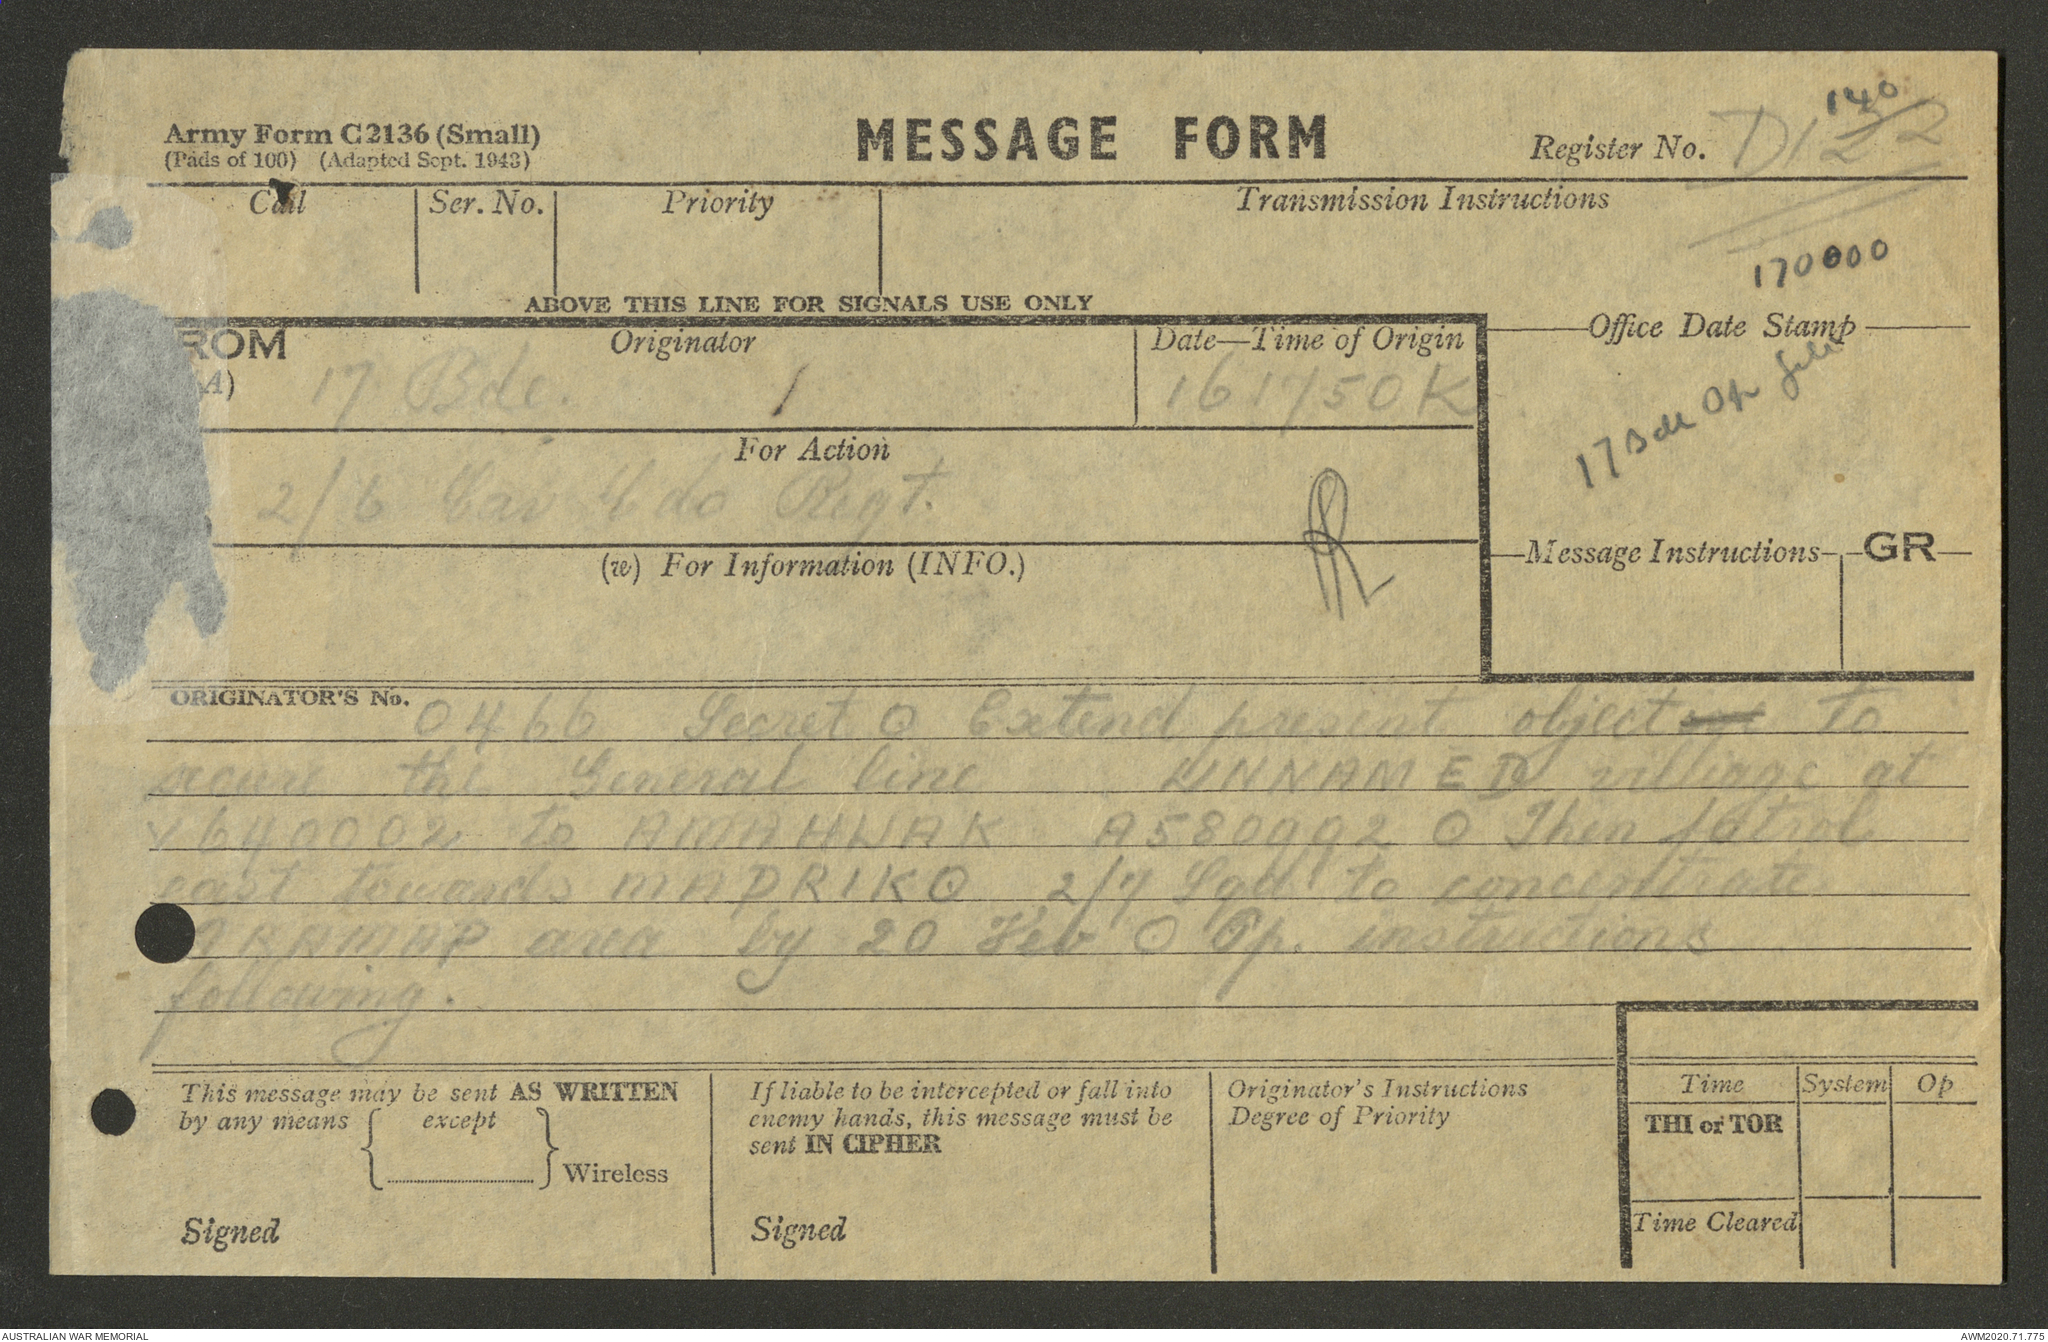 140
Army Form C2136 (Small)
(Pads of 100) (Adapted Sept. 1943)
MESSAGE FORM
Register No. D122
Call Ser. No. Priority Transmission Instructions
170000
ABOVE THIS LINE FOR SIGNALS USE ONLY
ROM Originator Date—Time of Origin Office Date Stamp
A) 17 Bde. 161750K
17 Bde Op file
For Action
2/6 Cav Cdo Regt.
(w) For Information (INFO.) Message Instructions GR
ORIGINATOR'S No. 0466 Secret O Extend present object to
secure the General line UNNAMED village at
V640002 to AMAHWAK A580992 O Then patrol
east towards MADRIKO 2/7 Sqd to concentrate
area by 20 Feb O Op. instructions
following.
This message may be sent AS WRITTEN
by any means except
Wireless
Signed
If liable to be intercepted or fall into
enemy hands, this message must be
sent IN CIPHER
Signed
Originator's Instructions
Degree of Priority
Time System Op
THI or TOR
Time Cleared
AUSTRALIAN WAR MEMORIAL
AWM2020.71.775